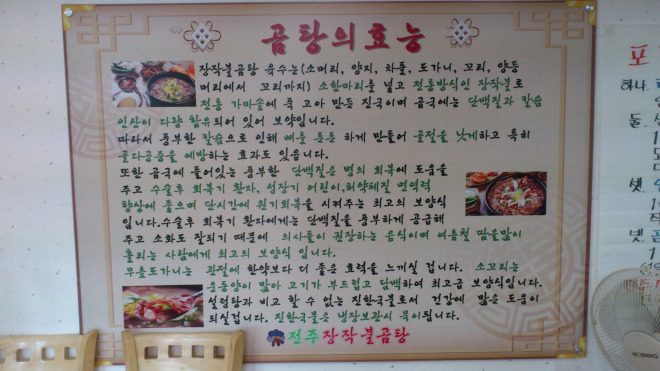 곰탕의효능
장작불곰탕 육수는(소머리, 양지, 차돌, 도가니, 꼬리, 양등
머리에서 꼬리까지) 소한마리를 넣고 전통방식인 장작불로
전통 가마솥에 푹 고아 만든 진국이며 곰국에는 단백질과 칼슘
인산이 다량 함유되어 있어 보약입니다.
따라서 풍부한 칼슘으로 인해 뼈를 튼튼 하게 만들어 골절을 낫게하고 특히
골다공증을 예방하는 효과도 있읍니다.
또한 곰국에 들어있는 풍부한 단백질은 병의 회복에 도움을
주고 수술후 회복기 환자, 성장기 어린이,허약체질 면역력
향상에 좋으며 단시간에 원기회복을 시켜주는 최고의 보양식
입니다.수술후 회복기 환자에게는 단백질을 풍부하게 공급해
주고 소화도 잘되기 때문에 의사들이 권장하는 음식이며 여름철 땀을많이
흘리는 사람에게 최고의 보양식 입니다.
무릎도가니는 관절에 한약보다 더 좋은 효력을 느끼실 겁니다. 소꼬리는
운동양이 많아 고기가 부드럽고 담백하여 최고급 보양식입니다.
설렁탕과 비교 할 수 없는 진한국물로서 건강에 많은 도움이
되실겁니다. 진한국물은 냉장보관시 묵이됩니다.
전주장작불곰탕
포
하나.
둘.
셋.
넷.